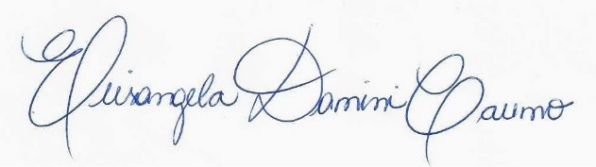 Elisangela Damini Caumo